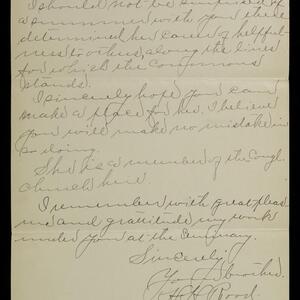 I should not be surprised if
a summer with you there
determined her career of helpful-
ness to others, along the lines
for which the
stands.
I sincerely hope you can
make a place for her. I believe
you will make no mistake in
so doing.
She is a member of the Cong'l
church here.
I remember with great pleas
and gratitude my work
under you at the Centenary.
Sincerely
Your brother